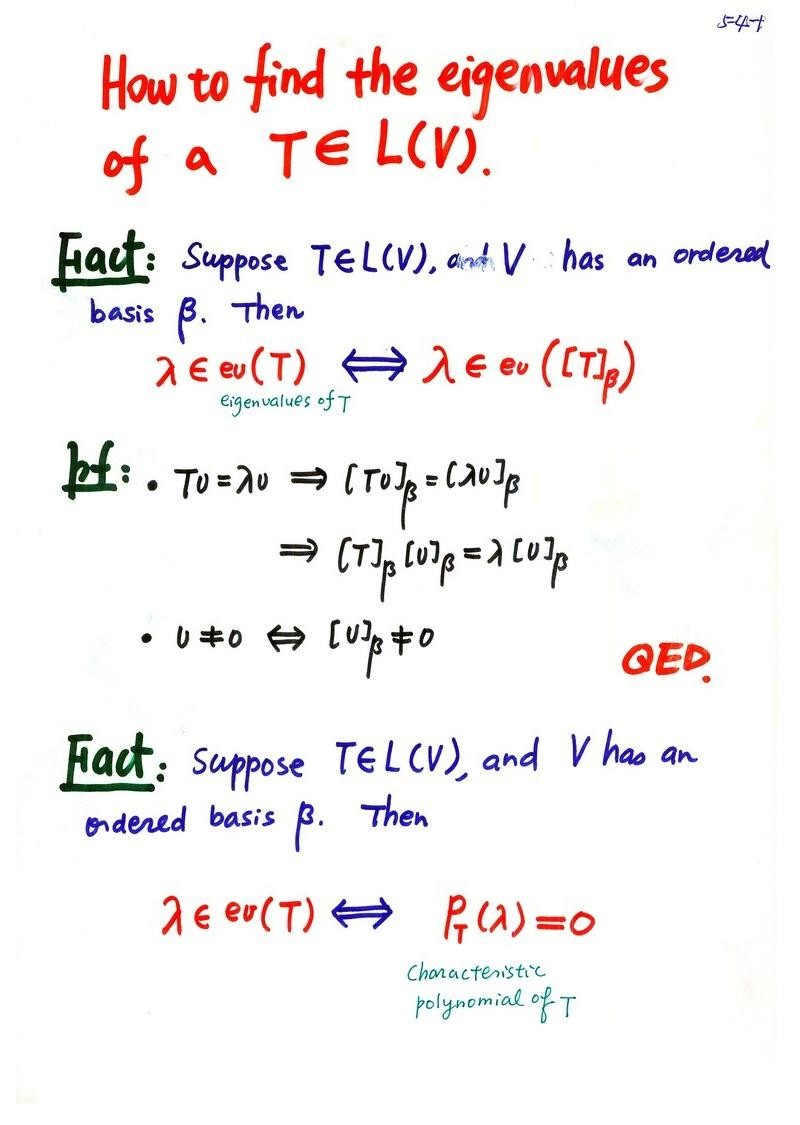 5-4-1
How to find the eigenvalues
of a T ∈ L(V).
Fact: Suppose T ∈ L(V), and V has an ordered
basis β. Then
λ ∈ ev(T) ⟺ λ ∈ ev([T]β)
eigenvalues of T
pf: • Tυ = λυ ⇒ [Tυ]β = [λυ]β
⇒ [T]β [υ]β = λ [υ]β
• υ ≠ 0 ⇔ [υ]β ≠ 0
QED.
Fact: Suppose T ∈ L(V), and V has an
ordered basis β. Then
λ ∈ ev(T) ⟺ P_T(λ) = 0
Characteristic
polynomial of T